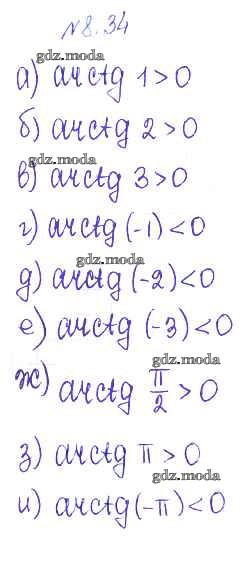 №8.34
gdz.moda
а) arctg 1 > 0
б) arctg 2 > 0
gdz.moda
в) arctg 3 > 0
г) arctg (-1) < 0
gdz.moda
д) arctg (-2) < 0
е) arctg (-3) < 0
gdz.moda
ж) arctg π/2 > 0
gdz.moda
з) arctg π > 0
gdz.moda
и) arctg (-π) < 0